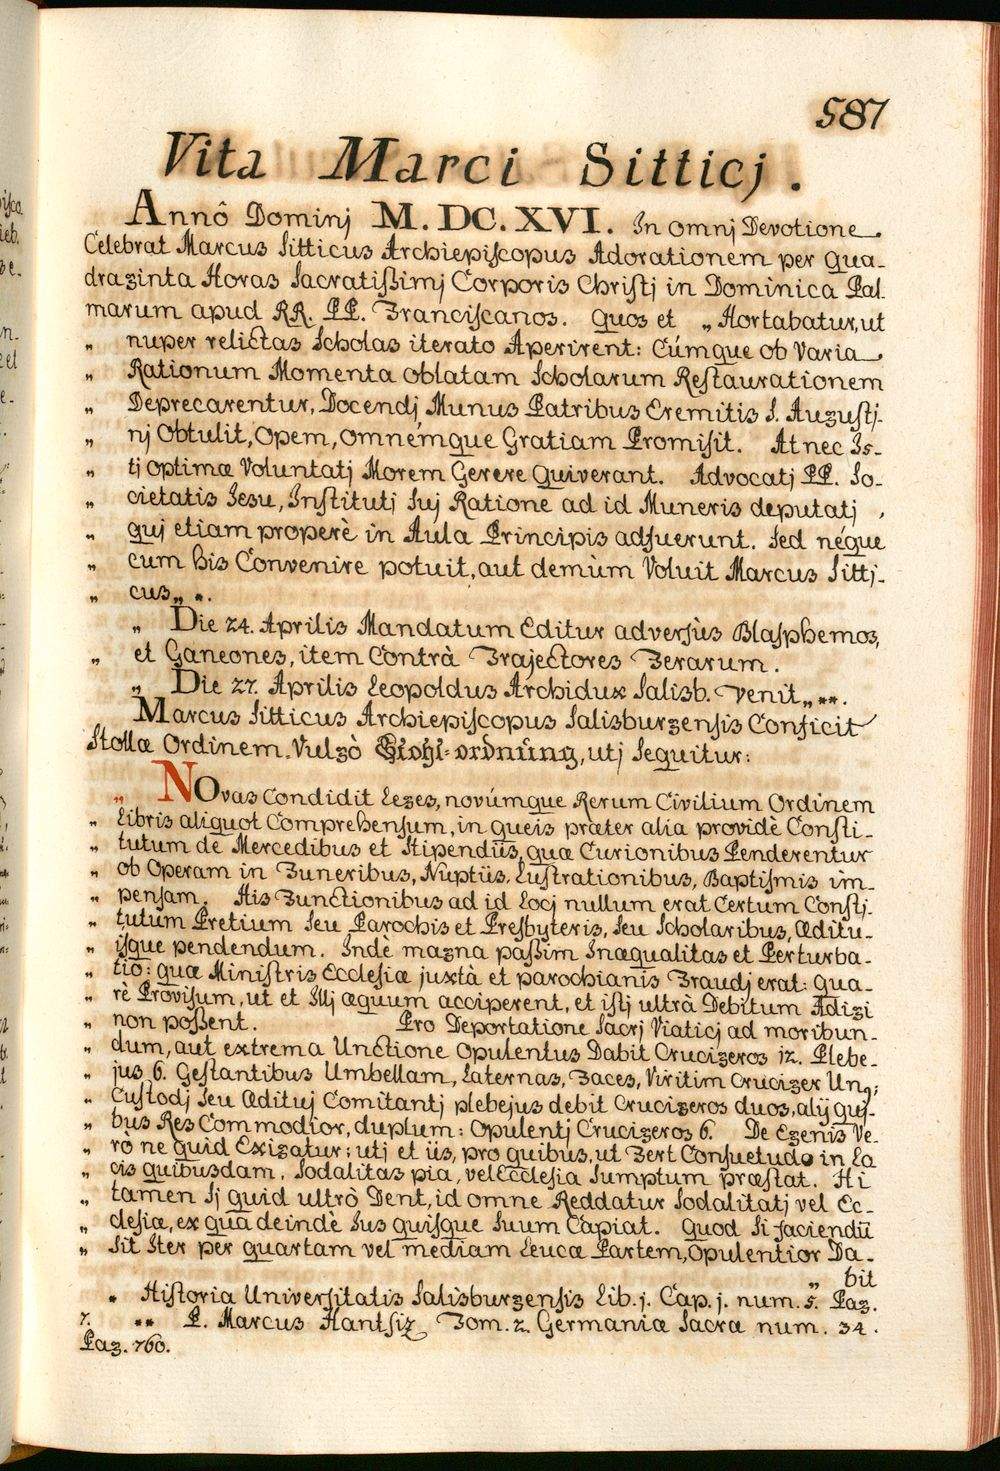 587
Vita Marci Sitticj.
Annô Dominj M.DC.XVI. In omnj Devotione
Celebrat Marcus Sitticus Archiepiscopus Adorationem per Qua-
draginta Horas Sacratißimj Corporis Christj in Dominica Pal-
marum apud RR. PP. Franciscanos. Quos et „ Hortabatur, ut
„ nuper relictas Scholas iterato Aperirent: Cúmque ob Varia
„ Rationum Momenta oblatam Scholarum Restaurationem
„ Deprecarentur, Docendj Munus Patribus Eremitis S. Augustj-
„ nj Obtulit, Opem, omnémque Gratiam Promisit. At nec Is-
„ tj optimæ Voluntatj Morem Gerere Quiverant. Advocatj PP. So-
„ cietatis Jesu, Institutj Suj Ratione ad id Muneris deputatj,
„ quj etiam properè in Aúla Principis adfuerunt. Sed néque
„ cum his Convenire potuit, aut demùm Voluit Marcus Sittj-
„ cus„ *.
„ Die 24. Aprilis Mandatum Editur adversùs Blasphemos,
„ et Ganeones, item Contrà Trajectores Ferarum.
„ Die 27. Aprilis Leopoldus Archidux Salisb. venit„ **.
Marcus Sitticus Archiepiscopus Salisburgensis Conficit
Stollæ Ordinem, Vulgò Stohl-ordnüng, utj sequitur:
„ NOvas Condidit Leges, novúmque Rerum Civilium Ordinem
„ Libris aliquot Comprehensum, in queis præter alia providè Consti-
„ tutum de Mercedibus et Stipendiis, quæ Curionibus Penderentur
„ ob Operam in Funeribus, Nuptiis, Lustrationibus, Baptismis im-
„ pensam. His Functionibus ad id Locj nullum erat Certum Constj-
„ tutum Pretium Seu Parochis et Presbyteris, Seu Scholaribus, Æditu-
„ isque pendendum. Indè magna paßim Inæqualitas et Perturba-
„ tio: quæ Ministris Ecclesiæ juxtà et parochianis Fraudj erat: Qua-
„ rè Provisum, ut et Illj æquum acciperent, et istj ultrà Debitum Adigi
„ non poßent. Pro Deportatione Sacrj Viaticj ad moribun-
„ dum, aut extrema Unctione Opulentus Dabit Crucigeros 12. Plebe-
„ jus 6. Gestantibus Umbellam, Laternas, Faces, Viritim Cruciger Un9;
„ Custodj Seu Ædituj Comitantj plebejus debit Crucigeros duos, alij quj-
„ bus Res Commodior, duplum: Opulentj Crucigeros 6. De Egenis Ve-
„ rò ne quid Exigatur; utj et iis, pro quibus, ut Fert Consuetudo in Lo
„ cis quibusdam, Sodalitas pia, vel Ecclesia Sumptum præstat. Hi
„ tamen Sj quid ultrò Dent, id omne Reddatur Sodalitatj vel Ec-
„ clesiæ, ex quâ deindè Jus quisque Suum Capiat. Quod Si faciendũ
„ Sit Iter per quartam vel mediam Leucæ Partem, Opulentior Da-
„ bit
* Historia Universitatis Salisburgensis Lib. j. Cap. j. num. 5. Pag.
7. ** P. Marcus Hansiz Tom. 2. Germaniæ Sacræ num. 34.
Pag. 760.